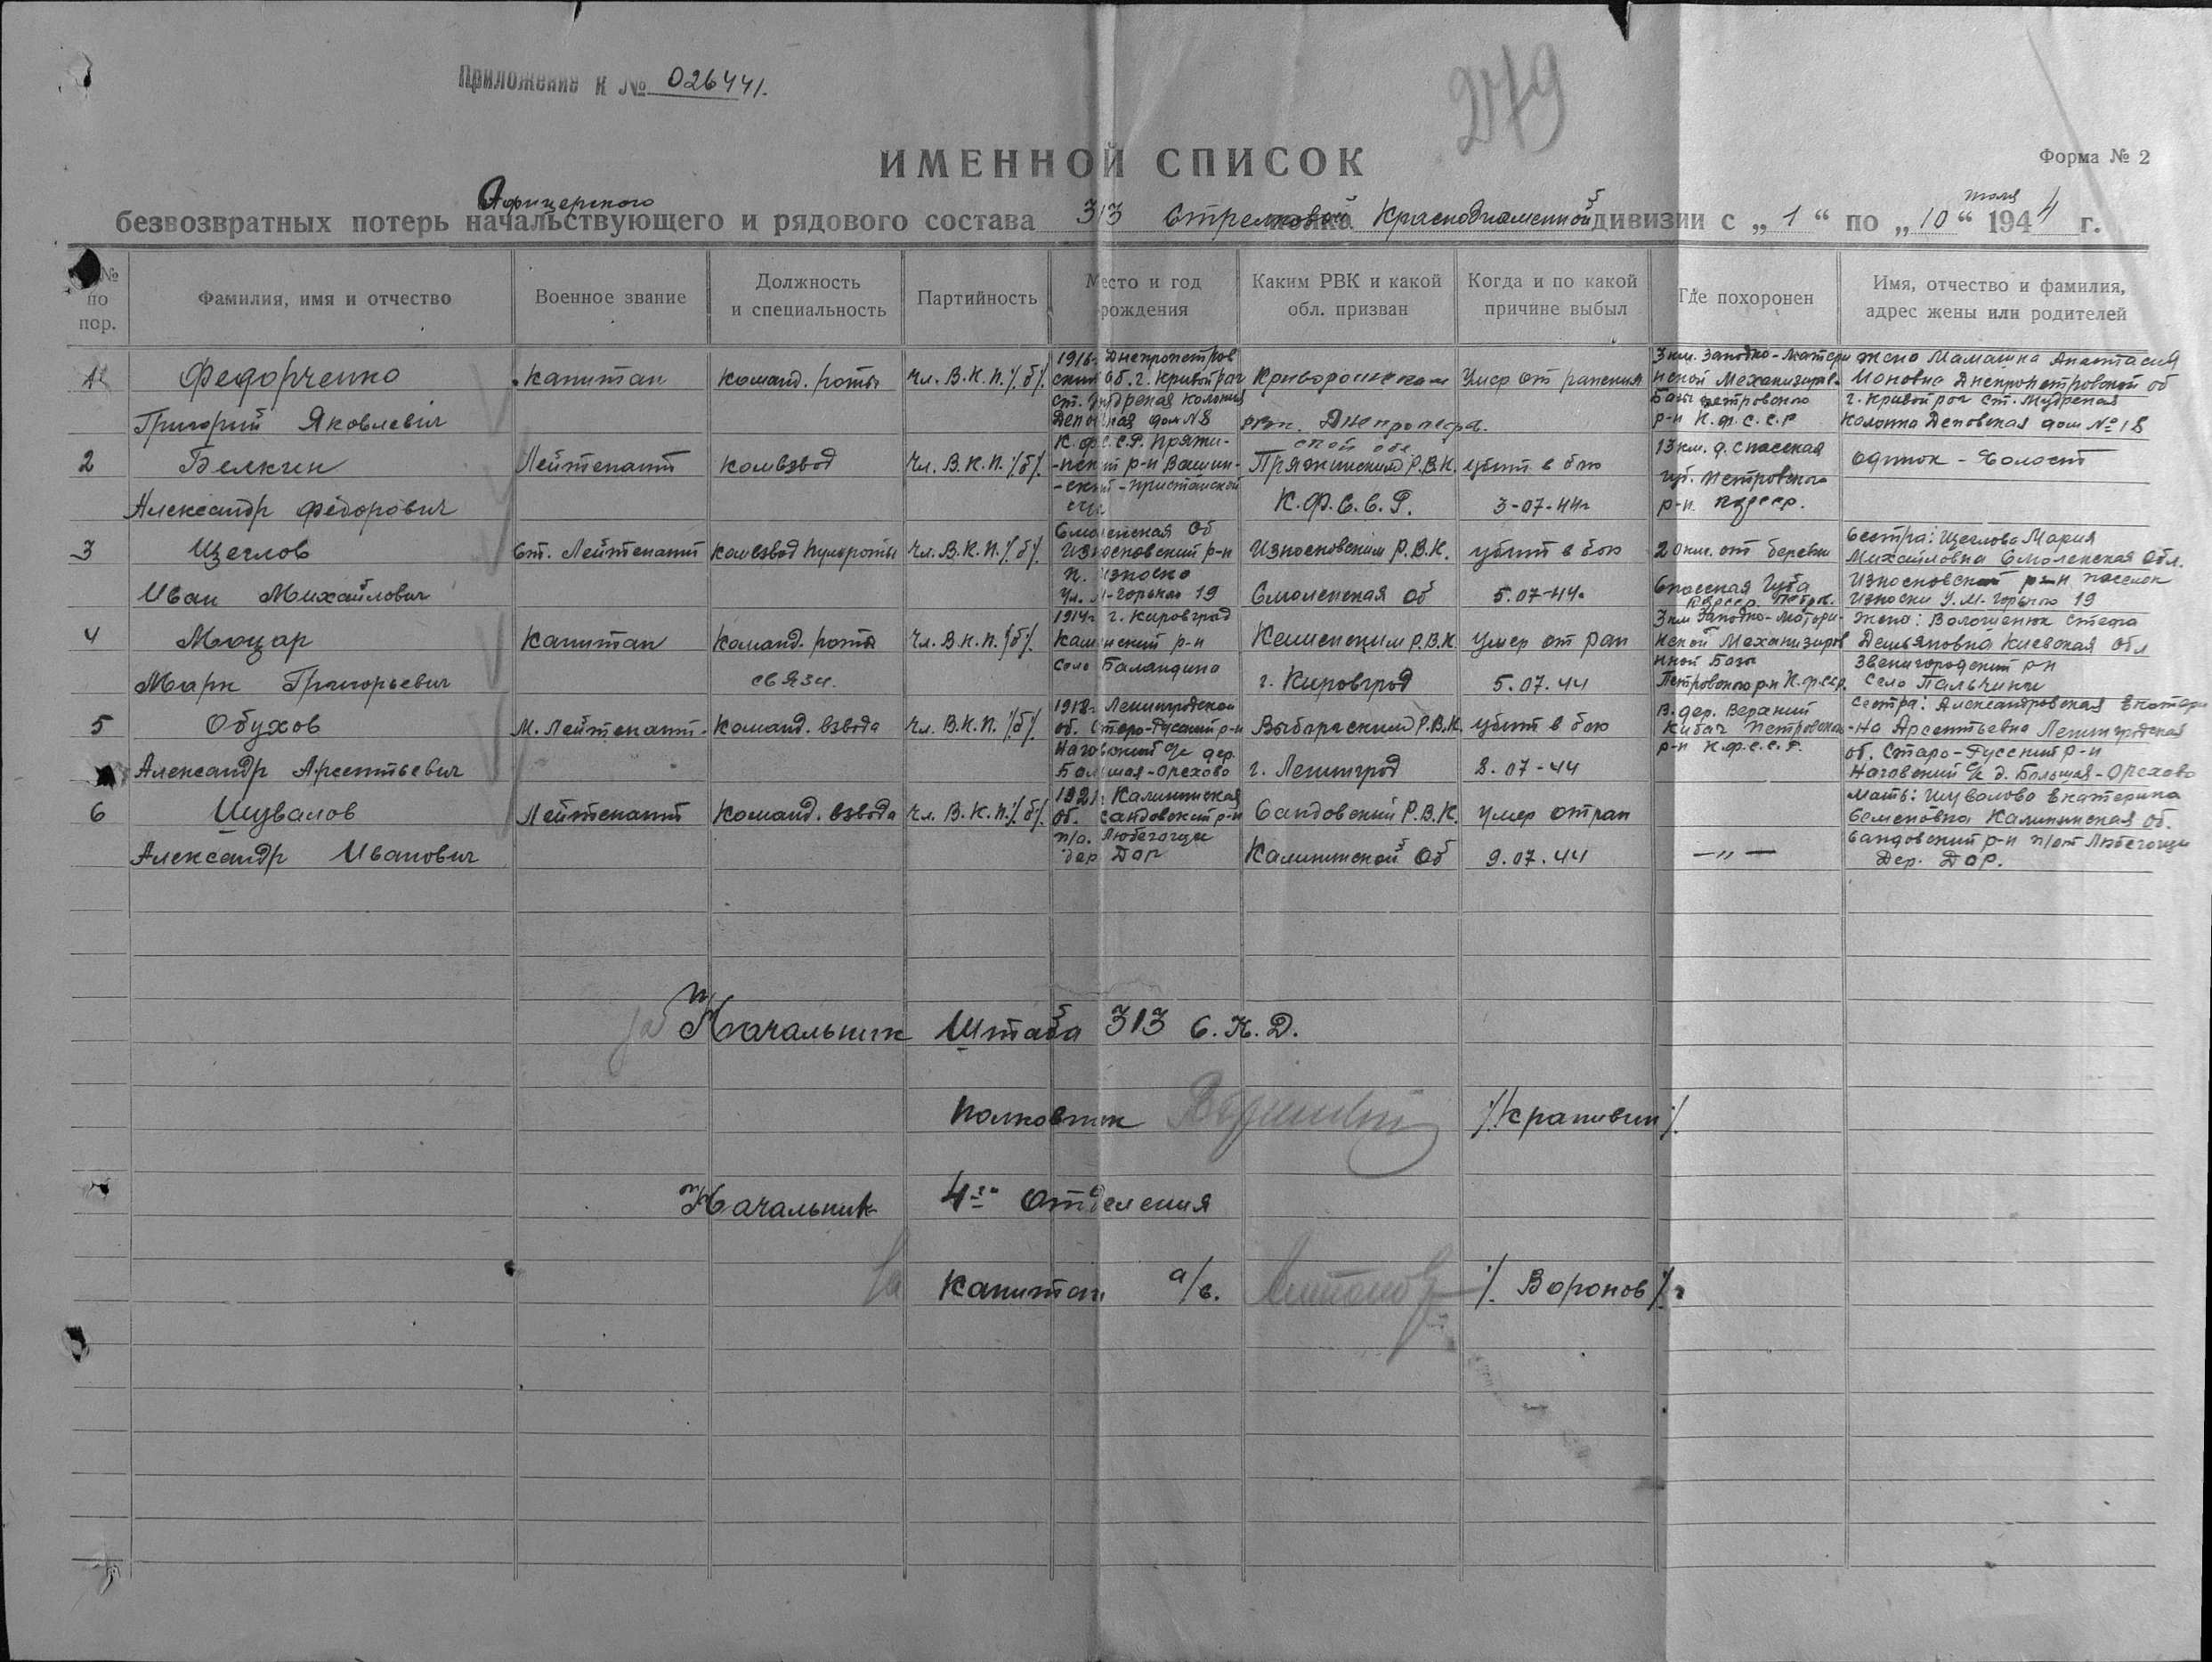 Приложение к № 026441.
279
ИМЕННОЙ СПИСОК
Форма № 2
Афицерского
июля
безвозвратных потерь начальствующего и рядового состава 313 Стрелковой Краснознаменной дивизии с „1“ по „10“ 1944 г.
№ по пор.
Фамилия, имя и отчество
Военное звание
Должность и специальность
Партийность
Место и год рождения
Каким РВК и какой обл. призван
Когда и по какой причине выбыл
Где похоронен
Имя, отчество и фамилия, адрес жены или родителей
1
Федорченко
Григорий Яковлевич
Капитан
Команд. роты
Чл. В.К.П./б/.
1916г Днепропетров
ский об. г. Кривой рог
ст. Мудреная колония
Деповская дом №8
Криворожским
рвк. Днепропетр.
ской обл
Умер от ранения
3 км. Западно-Матери
нской Механизиров.
Базы Петровского
р-н К.ф.С.С.Р
Жена Мамашка Анастасия
Ионовна Днепропетровской об
г. Кривой рог ст. Мудреная
Колонка Деповская дом №18
2
Белкин
Александр Фёдорович
Лейтенант
Комвзвод
Чл. В.К.П./б/.
К.ф.С.С.Р. Пряжи-
-нский р-н Вашин-
-ский-пристанской
с/с
Пряжинским Р.В.К.
К.Ф.С.С.Р.
убит в бою
3-07-44г
13 км. д. Спасская
губ. Петровского
р-н. кфсср.
одинок - Холост
3
Щеглов
Иван Михайлович
Ст. Лейтенант
Комвзвод Пульроты
Чл. В.К.П./б/.
Смоленская Об
Износковский р-н
п. Износко
Ул. М-Горького 19
Износковским Р.В.К.
Смоленская Об
убит в бою
5.07-44г
20 км. от деревни
Спасская Губа
Кфсср. Петров.
Сестра: Щеглова Мария
Михайловна Смоленская Обл.
Износковский р-н поселок
Износки У.М-Горького 19
4
Моцар
Марк Григорьевич
Капитан
Команд. роты
связи.
Чл. В.К.П./б/.
1914г г. Кировград
Каменский р-н
Село Баландина
Каменским Р.В.К
г. Кировград
Умер от ран
5.07.44
3 км Западно-Матери-
нской Механизиров
нной Базы
Петровского р-н К.ф.сср.
Жена: Волошенюк Стефа
Демьяновна Киевская Обл
Звенигородский р-н
Село Пальчики
5
Обухов
Александр Арсентьевич
М. Лейтенант
Команд. взвода
Чл. В.К.П./б/.
1918г Ленинградской
об. Старо-Русский р-н
Наговский с/с дер.
Большая-Орехово
Выборгским Р.В.К
г. Ленинград
убит в бою
8.07-44
В. дер. Верхний
Кибач Петровско
р-н К.ф.С.С.Р.
Сестра: Александровская Екатери
-на Арсентьевна Ленинградская
об. Старо-Русский р-н
Наговский с/с д. Большая-Орехово
6
Шувалов
Александр Иванович
Лейтенант
Команд. взвода
Чл. В.К.П./б/.
1921г Калининская
об. Сандовский р-н
п/о. Любегощи
дер Дор
Сандовский Р.В.К.
Калининской Об
Умер от ран
9.07.44
—"—
Мать: Шувалова Екатерина
Семеновна Калининская об.
Сандовский р-н п/от Любегощи
Дер. Дор.
Начальник Штаба 313 С.К.Д.
Полковник /Крапивин/.
Начальник 4го Отделения
Капитан а/с. /. Воронов /.